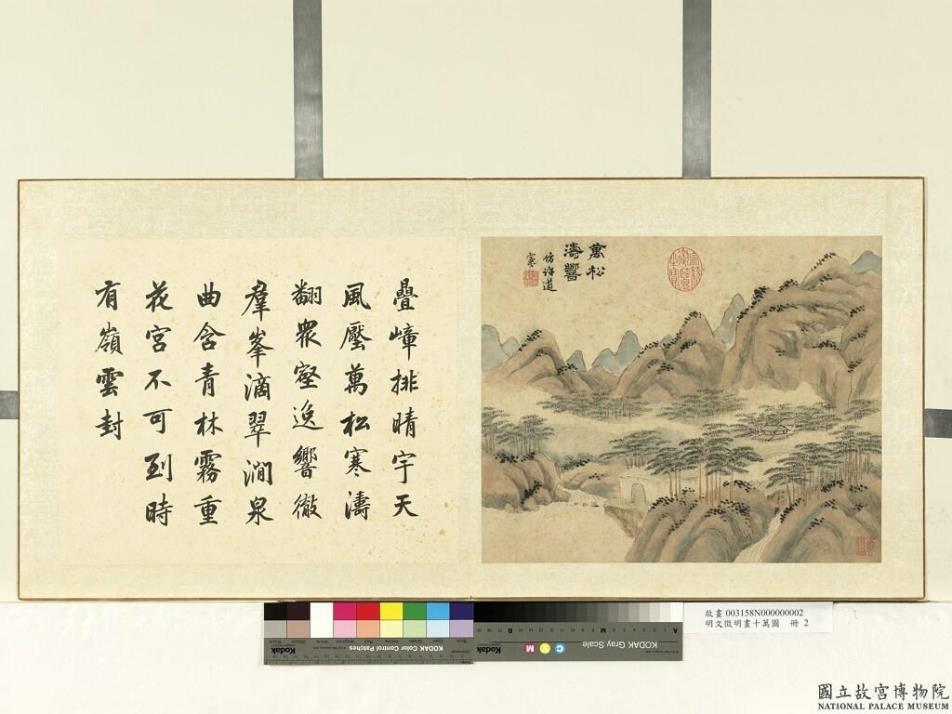 萬松
濤響
仿許道
寧
疊嶂排晴宇天
風壓萬松寒濤
翻衆壑逸響徹
羣峯滴翠澗泉
曲含青林霧重
花宮不可到時
有嶺雲封
KODAK Color Control Patches
Kodak
KODAK Gray Scale
Kodak
C Y M
A
M
B
故畫 003158N000000002
明文徵明畫十萬圖 冊 2
國立故宮博物院
NATIONAL PALACE MUSEUM